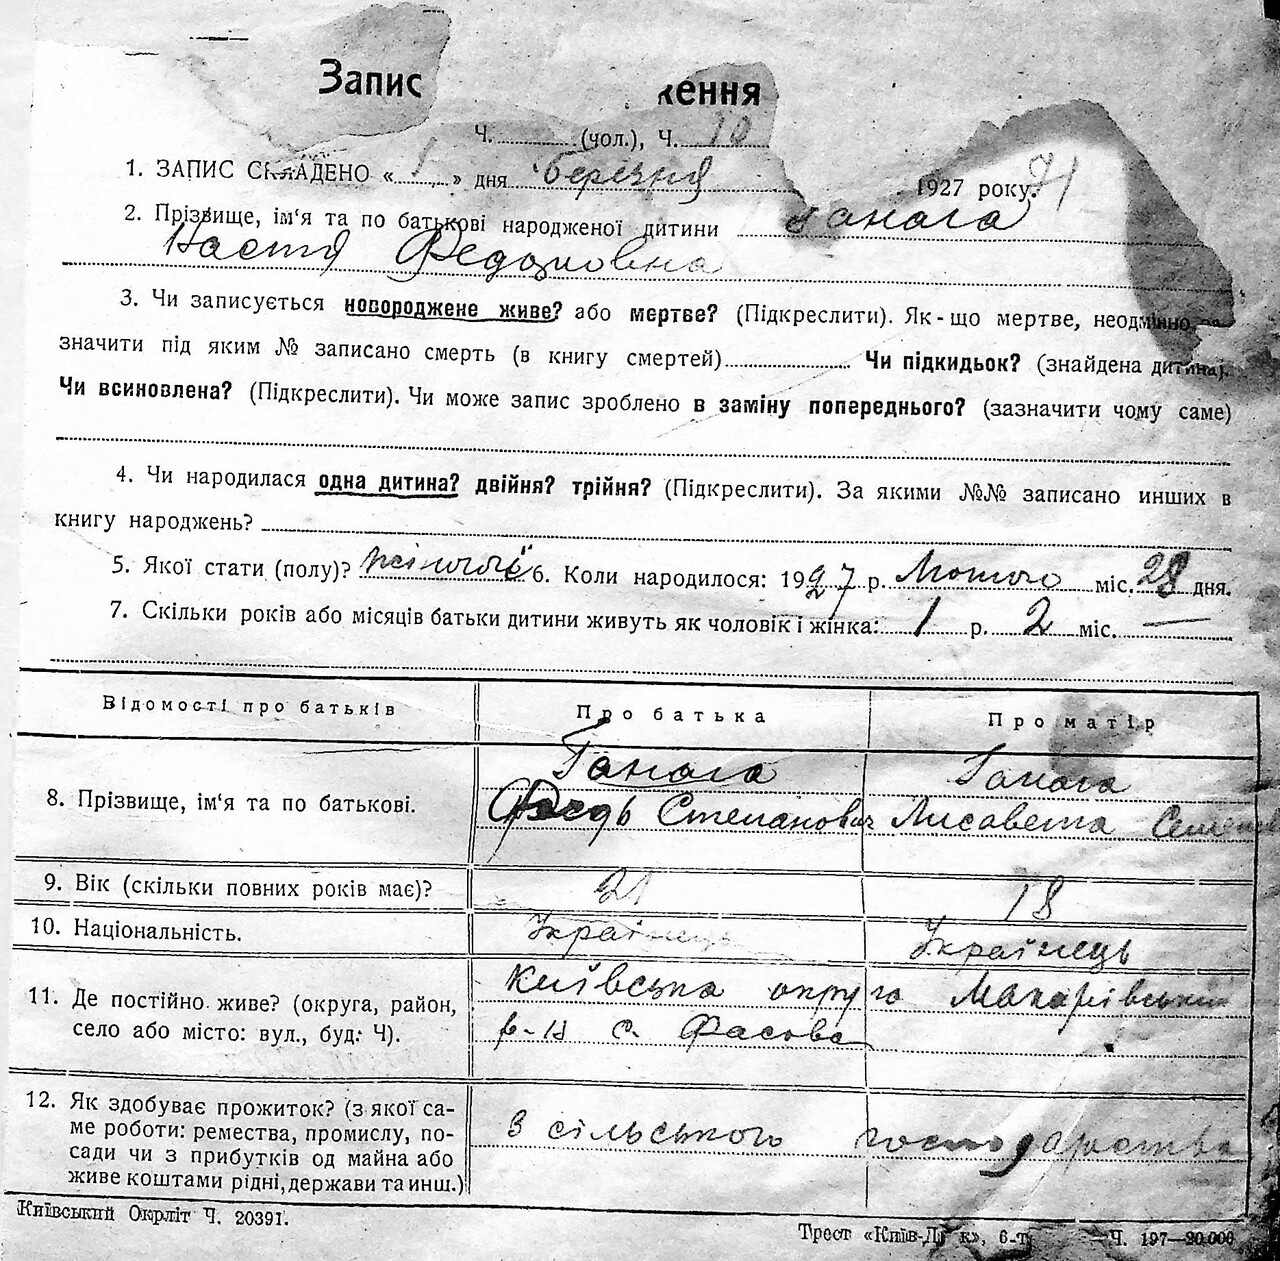 Запис ження
Ч. (чол.), Ч. 10
1. ЗАПИС СКЛАДЕНО « 1 » дня березня 1927 року. 71
2. Прізвище, ім‘я та по батькові народженої дитини Ганага
Настя Федоровна
3. Чи записується новороджене живе? або мертве? (Підкреслити). Як-що мертве, неодмінно за-
значити під яким № записано смерть (в книгу смертей) Чи підкидьок? (знайдена дитина).
Чи всиновлена? (Підкреслити). Чи може запис зроблено в заміну попереднього? (зазначити чому саме)
4. Чи народилася одна дитина? двійня? трійня? (Підкреслити). За якими №№ записано инших в
книгу народжень?
5. Якої стати (полу)? жіночої 6. Коли народилося: 1927 р. Лютого міс. 28 дня.
7. Скільки років або місяців батьки дитини живуть як чоловік і жінка: 1 р. 2 міс. —
Відомості про батьків Про батька Про матір
8. Прізвище, ім‘я та по батькові. Ганага Ганага
Федь Степанович Лисавета
9. Вік (скільки повних років має)? 21 18
10. Національність. Українець Українець
11. Де постійно живе? (округа, район, село або місто: вул., буд: Ч). Київська округа Макарівський
р-н с. Фасова
12. Як здобуває прожиток? (з якої са-
ме роботи: ремества, промислу, по-
сади чи з прибутків од майна або
живе коштами рідні, держави та инш.) З сільського господарства
Київський Окрліт Ч. 20391.
Трест «Київ-Д к», 6-т —Ч. 197—20.000